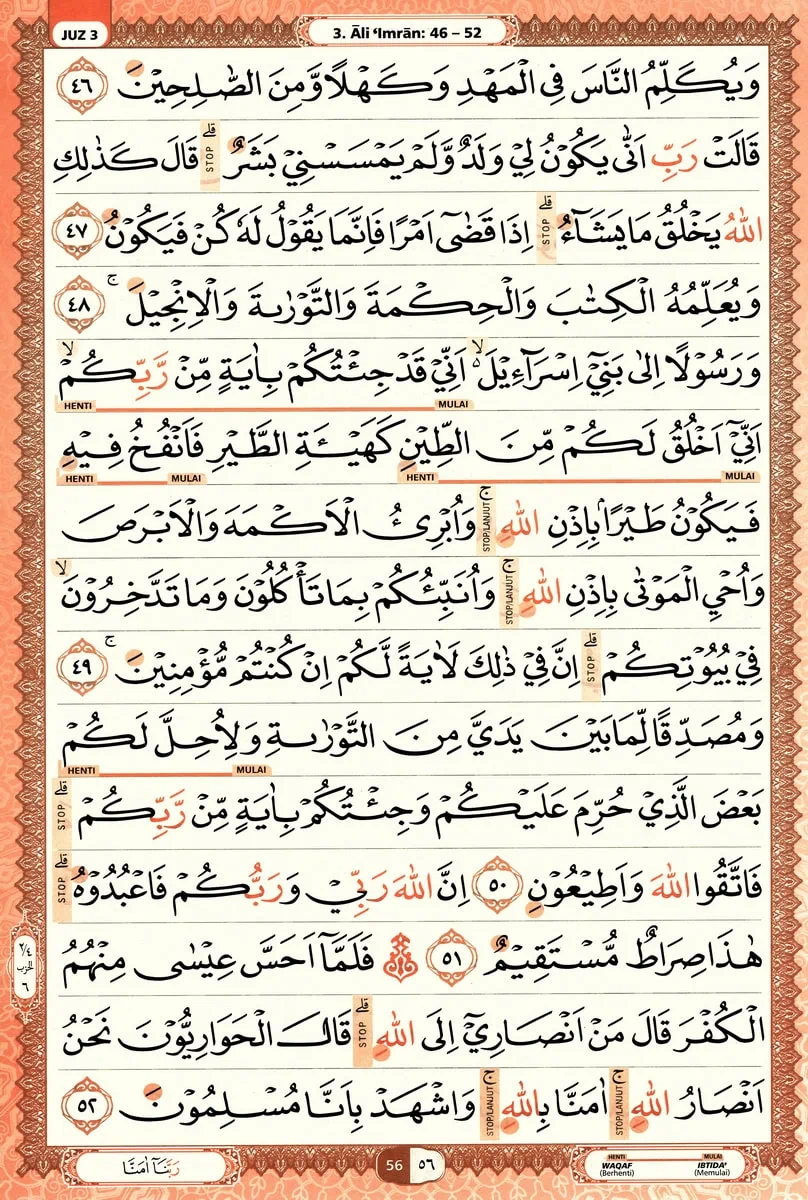 JUZ 3
3. Āli ‘Imrān: 46 – 52
وَيُكَلِّمُ النَّاسَ فِى الْمَهْدِ وَكَهْلًا وَّمِنَ الصّٰلِحِيْنَ ٤٦
قَالَتْ رَبِّ اَنّٰى يَكُوْنُ لِيْ وَلَدٌ وَّلَمْ يَمْسَسْنِيْ بَشَرٌ ۗ STOP قَالَ كَذٰلِكِ
اللّٰهُ يَخْلُقُ مَا يَشَاۤءُ ۗ STOP اِذَا قَضٰٓى اَمْرًا فَاِنَّمَا يَقُوْلُ لَهٗ كُنْ فَيَكُوْنُ ٤٧
وَيُعَلِّمُهُ الْكِتٰبَ وَالْحِكْمَةَ وَالتَّوْرٰىةَ وَالْاِنْجِيْلَ ۚ ٤٨
وَرَسُوْلًا اِلٰى بَنِيْٓ اِسْرَاۤءِيْلَ ەۙ اَنِّيْ قَدْ جِئْتُكُمْ بِاٰيَةٍ مِّنْ رَّبِّكُمْ ۙ
MULAI HENTI
اَنِّيْٓ اَخْلُقُ لَكُمْ مِّنَ الطِّيْنِ كَهَيْـَٔةِ الطَّيْرِ فَاَنْفُخُ فِيْهِ
MULAI HENTI MULAI HENTI
فَيَكُوْنُ طَيْرًاۢ بِاِذْنِ اللّٰهِ ۚ STOP/LANJUT وَاُبْرِئُ الْاَكْمَهَ وَالْاَبْرَصَ
وَاُحْيِ الْمَوْتٰى بِاِذْنِ اللّٰهِ ۚ STOP/LANJUT وَاُنَبِّئُكُمْ بِمَا تَأْكُلُوْنَ وَمَا تَدَّخِرُوْنَ ۙ
فِيْ بُيُوْتِكُمْ ۗ STOP اِنَّ فِيْ ذٰلِكَ لَاٰيَةً لَّكُمْ اِنْ كُنْتُمْ مُّؤْمِنِيْنَ ۚ ٤٩
وَمُصَدِّقًا لِّمَا بَيْنَ يَدَيَّ مِنَ التَّوْرٰىةِ وَلِاُحِلَّ لَكُمْ
MULAI HENTI
بَعْضَ الَّذِيْ حُرِّمَ عَلَيْكُمْ وَجِئْتُكُمْ بِاٰيَةٍ مِّنْ رَّبِّكُمْ ۗ STOP
فَاتَّقُوا اللّٰهَ وَاَطِيْعُوْنِ ٥٠ اِنَّ اللّٰهَ رَبِّيْ وَرَبُّكُمْ فَاعْبُدُوْهُ ۗ STOP
هٰذَا صِرَاطٌ مُّسْتَقِيْمٌ ٥١ فَلَمَّآ اَحَسَّ عِيْسٰى مِنْهُمُ
٢/٤ الحزب ٦
الْكُفْرَ قَالَ مَنْ اَنْصَارِيْٓ اِلَى اللّٰهِ ۗ STOP قَالَ الْحَوَارِيُّوْنَ نَحْنُ
اَنْصَارُ اللّٰهِ ۚ STOP/LANJUT اٰمَنَّا بِاللّٰهِ ۚ STOP/LANJUT وَاشْهَدْ بِاَنَّا مُسْلِمُوْنَ ٥٢
رَبَّنَآ اٰمَنَّا
56 ٥٦
HENTI MULAI
WAQAF IBTIDA’
(Berhenti) (Memulai)